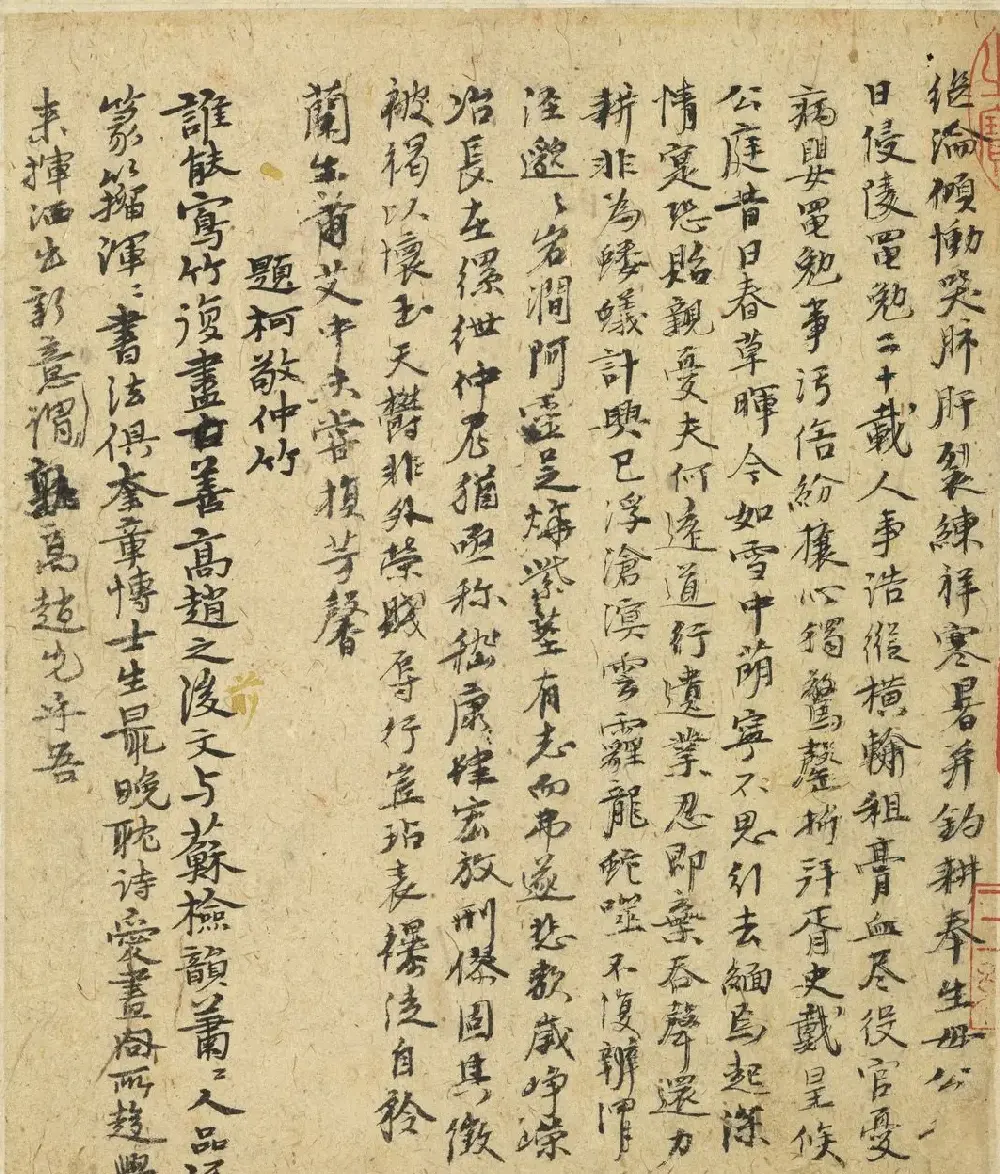 継淪傾慟哭肺肝裂練祥寒暑并釣耕奉生母公
日侵陵黽勉二十載人事浩縱橫輸租膏血尽役官憂
病嬰黽勉事污俗紛攘心獨驚磬折拜胥史戴星候
公庭昔日春草暉今如雪中萌寧不思引去緬焉起深
情寔恐貽親憂夫何遠道行遺業忍即棄吞聲還力
耕非為螻蟻計興已浮滄溟雲霾龍蛇噬不復辨渭
涇邈〻岩澗阿靈芝燁紫莖有志而弗遂悲歌歲崢嶸
冶長在縲紲仲尼猶亟称嵇康肆宏放刑僇固其徵
被褐以懷玉天爵非外榮賤辱行豈玷表襮徒自矜
蘭生蕭艾中未嘗損芳馨
題柯敬仲竹
誰能寫竹復盡善高趙之後文与蘇檢韻蕭〻人品
篆籀渾〻書法俱奎章博士生最晚耽詩愛畫同所趍興
来揮洒出新意謂孰高趙先乎吾